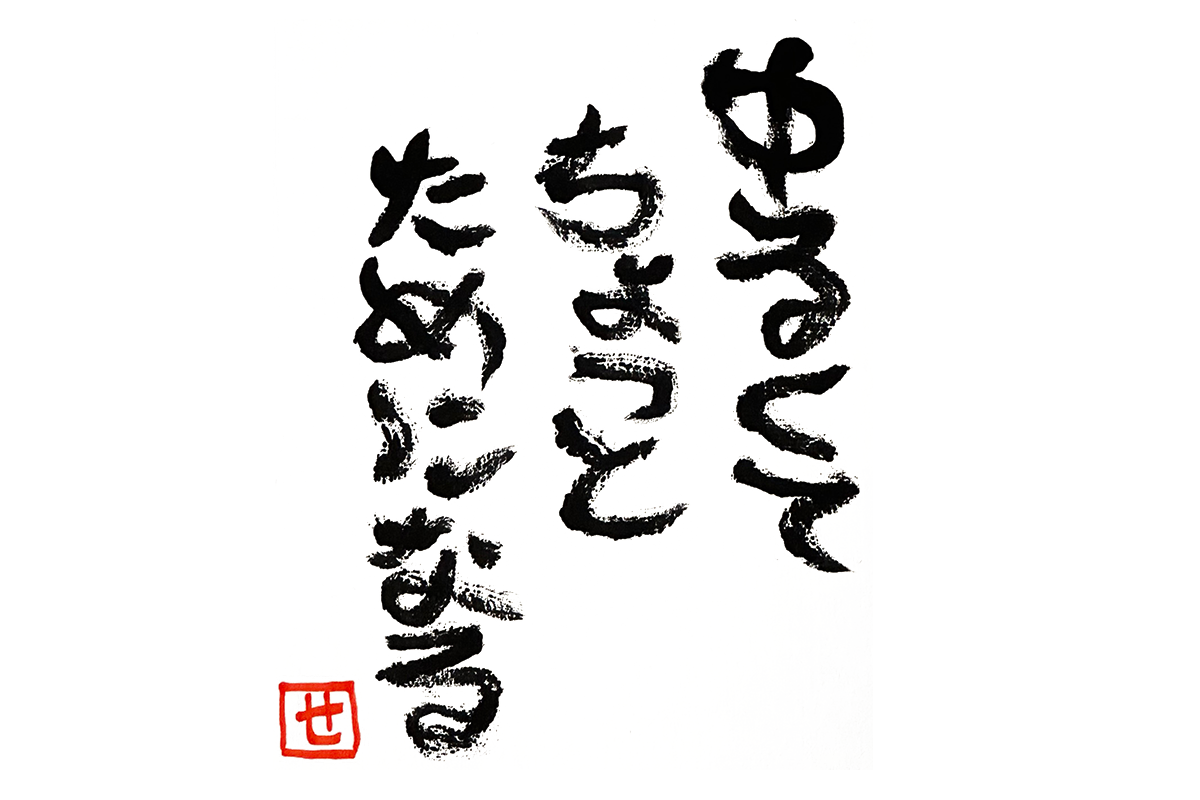 ゆるくて
ちょっと
ためになる
せ